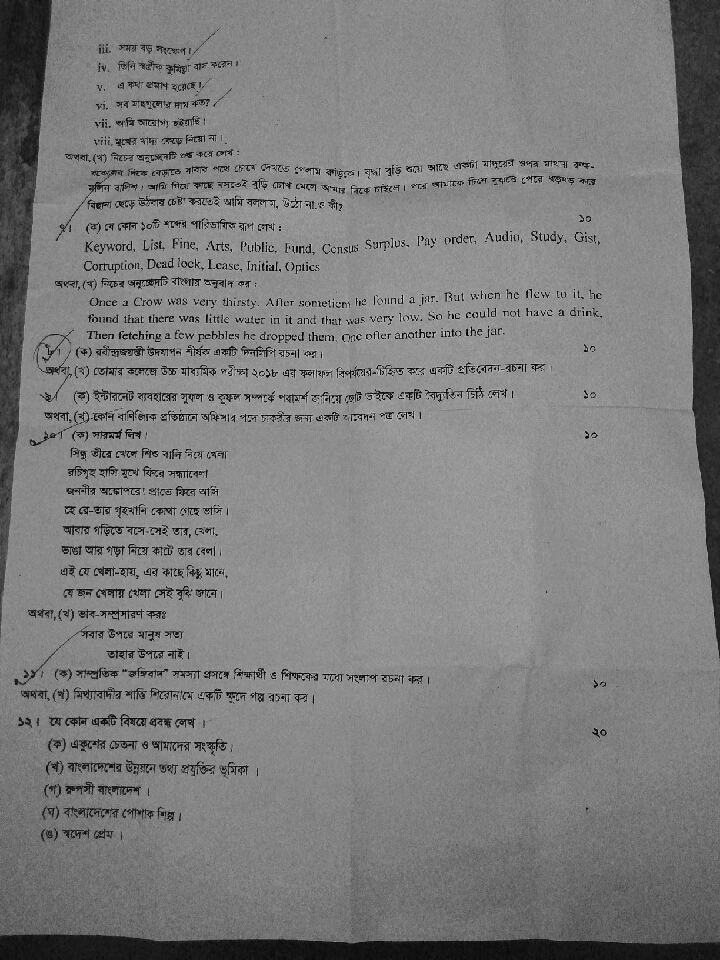 iii. সময় বড় সংক্ষেপ।
iv. তিনি স্বস্ত্রীক কুমিল্লা বাস করেন।
v. এ কথা প্রমাণ হয়েছে।
vi. সব মাছগুলোর দাম কত?
vii. আমি আরোগ্য হইয়াছি।
viii. মুখের খাদ্য কেড়ে নিয়ো না।
অথবা, (খ) নিচের অনুচ্ছেদটি শুদ্ধ করে লেখ :
বিকেলের দিকে বেড়াতে যাবার পথে চোখে দেখতে পেলাম বুড়িকে। বৃদ্ধা বুড়ি শুয়ে আছে একটা মাদুরের ওপর মাথায়
মলিন বালিশ। আমি গিয়ে কাছে বসতেই বুড়ি চোখ মেলে আমার দিকে চাইলে। পরে আমাকে চিনে বুঝতে পেরে ধড়মড় করে
বিছানা ছেড়ে উঠবার চেষ্টা করতেই আমি বললাম, উঠো না,ও কী?
৭। (ক) যে কোন ১০টি শব্দের পারিভাষিক রূপ লেখ : ১০
Keyword, List, Fine, Arts, Public, Fund, Census Surplus, Pay order, Audio, Study, Gist,
Corruption, Dead lock, Lease, Initial, Optics
অথবা, (খ) নিচের অনুচ্ছেদটি বাংলায় অনুবাদ কর :
Once a Crow was very thirsty. After sometiem he found a jar. But when he flew to it, he
found that there was little water in it and that was very low. So he could not have a drink,
Then fetching a few pebbles he dropped them. One ofler another into the jar.
৮। (ক) রবীন্দ্রজয়ন্তী উদযাপন শীর্ষক একটি দিনলিপি রচনা কর। ১০
অথবা, (খ) তোমার কলেজে উচ্চ মাধ্যমিক পরীক্ষা ২০১৮ এর ফলাফল বিপর্যয়ের-চিহ্নিত করে একটি প্রতিবেদন-রচনা কর।
৯। (ক) ইন্টারনেট ব্যবহারের সুফল ও কুফল সম্পর্কে পরামর্শ জানিয়ে ছোট ভাইকে একটি বৈদ্যুতিন চিঠি লেখ। ১০
অথবা, (খ) কোন বাণিজ্যিক প্রতিষ্ঠানে অফিসার পদে চাকরীর জন্য একটি আবেদন পত্র লেখ।
১০। (ক) সারমর্ম লিখ। ১০
সিন্ধু তীরে খেলে শিশু বালি নিয়ে খেলা
রচিগৃহ হাসি মুখে ফিরে সন্ধ্যাবেলা
জননীর অঙ্কোপরে! প্রাতে ফিরে আসি
হে রে-তার গৃহখানি কোথা গেছে ভাসি।
আবার গড়িতে বসে-সেই তার, খেলা,
ভাঙা আর গড়া নিয়ে কাটে তার বেলা।
এই যে খেলা-হায়, এর কাছে কিছু মানে,
যে জন খেলায় খেলা সেই বুঝি জানে।
অথবা, (খ) ভাব-সম্প্রসারণ করঃ
সবার উপরে মানুষ সত্য
তাহার উপরে নাই।
১১। (ক) সাম্প্রতিক "জঙ্গিবাদ" সমস্যা প্রসঙ্গে শিক্ষার্থী ও শিক্ষকের মধ্যে সংলাপ রচনা কর। ১০
অথবা, (খ) মিথ্যাবাদীর শাস্তি শিরোনামে একটি ক্ষুদে গল্প রচনা কর।
১২। যে কোন একটি বিষয়ে প্রবন্ধ লেখ । ২০
(ক) একুশের চেতনা ও আমাদের সংস্কৃতি।
(খ) বাংলাদেশের উন্নয়নে তথ্য প্রযুক্তির ভূমিকা ।
(গ) রুপসী বাংলাদেশ ।
(ঘ) বাংলাদেশের পোশাক শিল্প।
(ঙ) স্বদেশ প্রেম ।